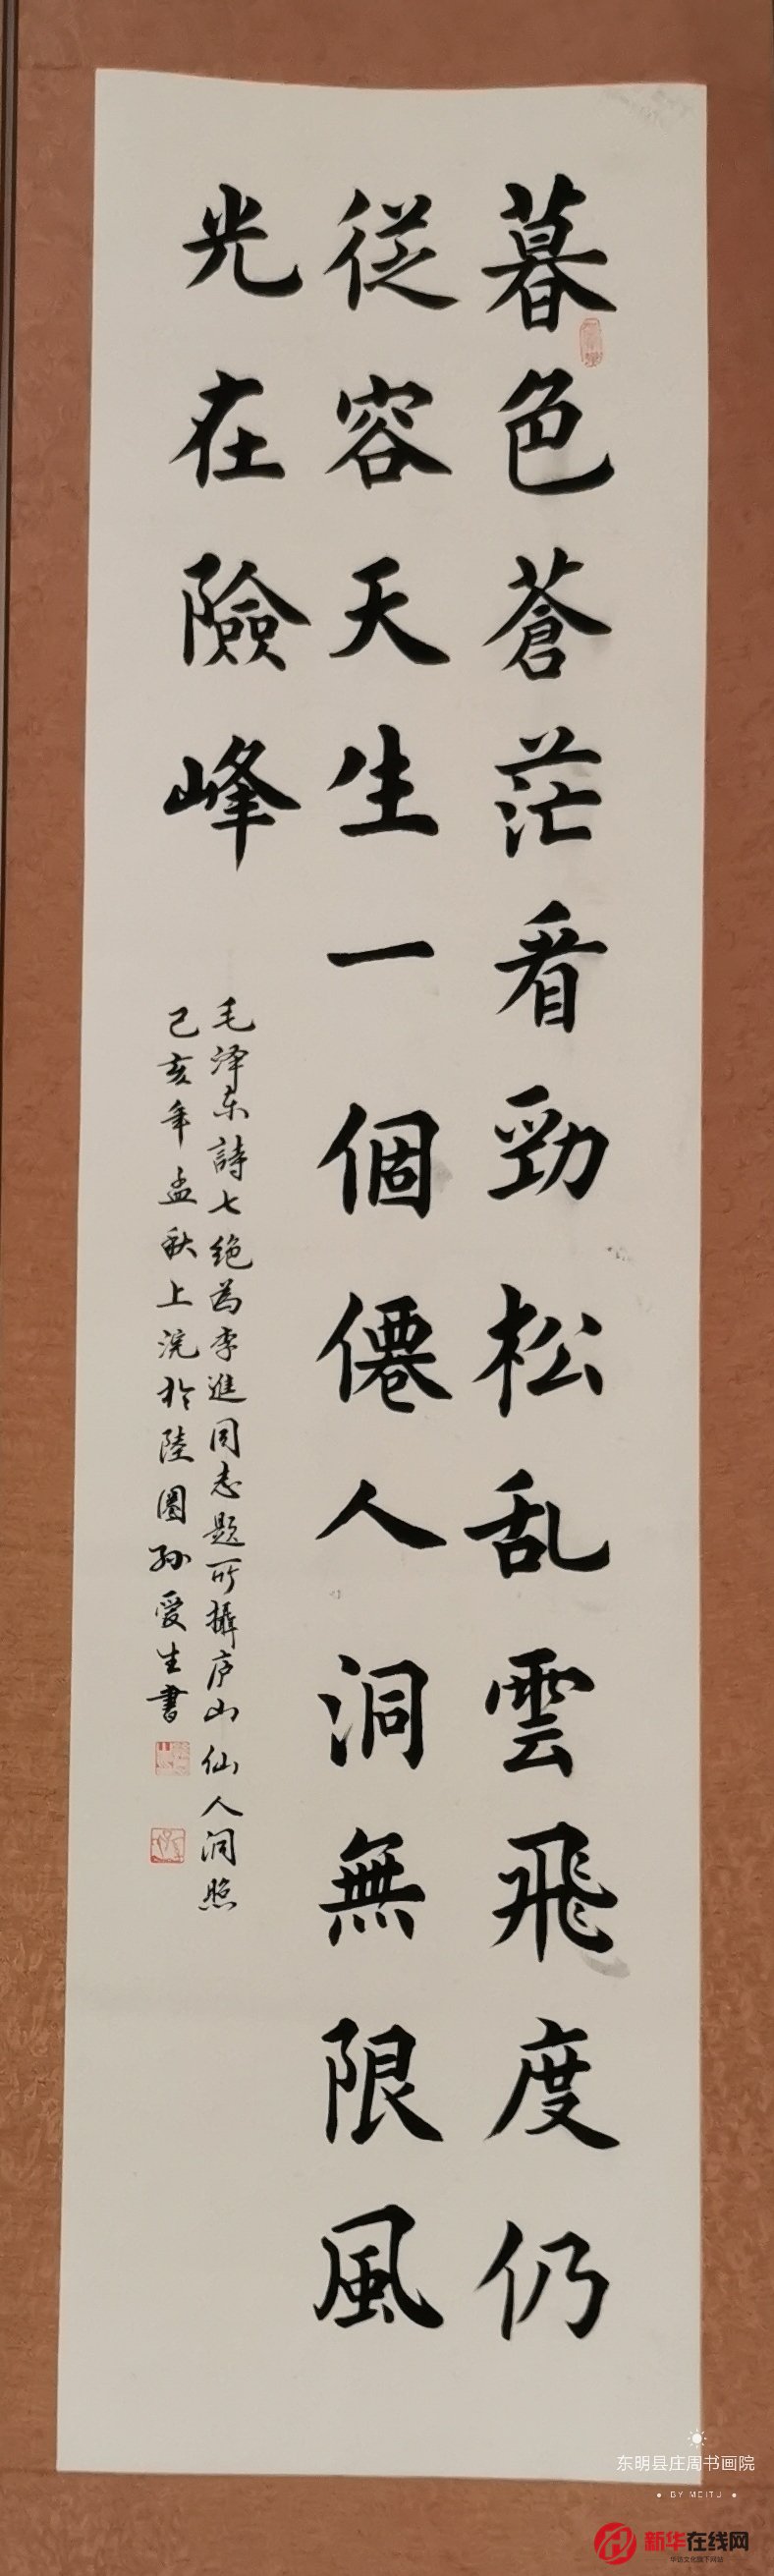 暮色蒼茫看勁松乱雲飛度仍
從容天生一個僊人洞無限風
光在險峰
毛泽东詩七绝為李進同志题所攝庐山仙人洞照
己亥年孟秋上浣於陸圈孙爱生書
东明县庄周书画院
BY MEITU
新华在线网